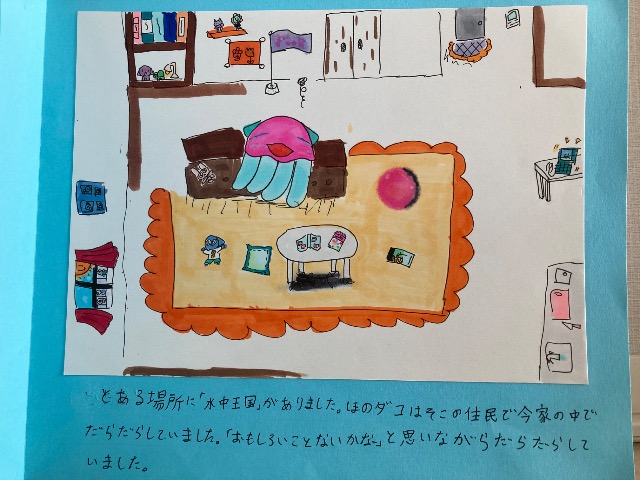 とある場所に「水中王国」がありました。ほのダコはそこの住民で今家の中で
だらだらしていました。「おもしろいことないかな」と思いながらだらだらして
いました。